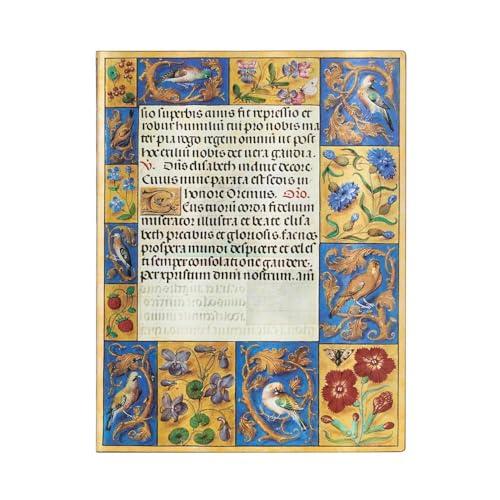 sio superbis cuius fit repressio et
robur humilui cui pro nobis ma
ter pia rego regem omniu ut post
hoc exiliu nobis det vera gaudia.
V. Diua elisabeth indue decore
Cuius nunc parata est sedis in
honore Oremus. Oro.
Tu corda fidelium
miserator illustra et beate elisa
beth precibus et gloriosis. facnos
prospera mundi despicere et celes
ti semper consolatione gaudere.
Per xpristum dnm nostrum. am